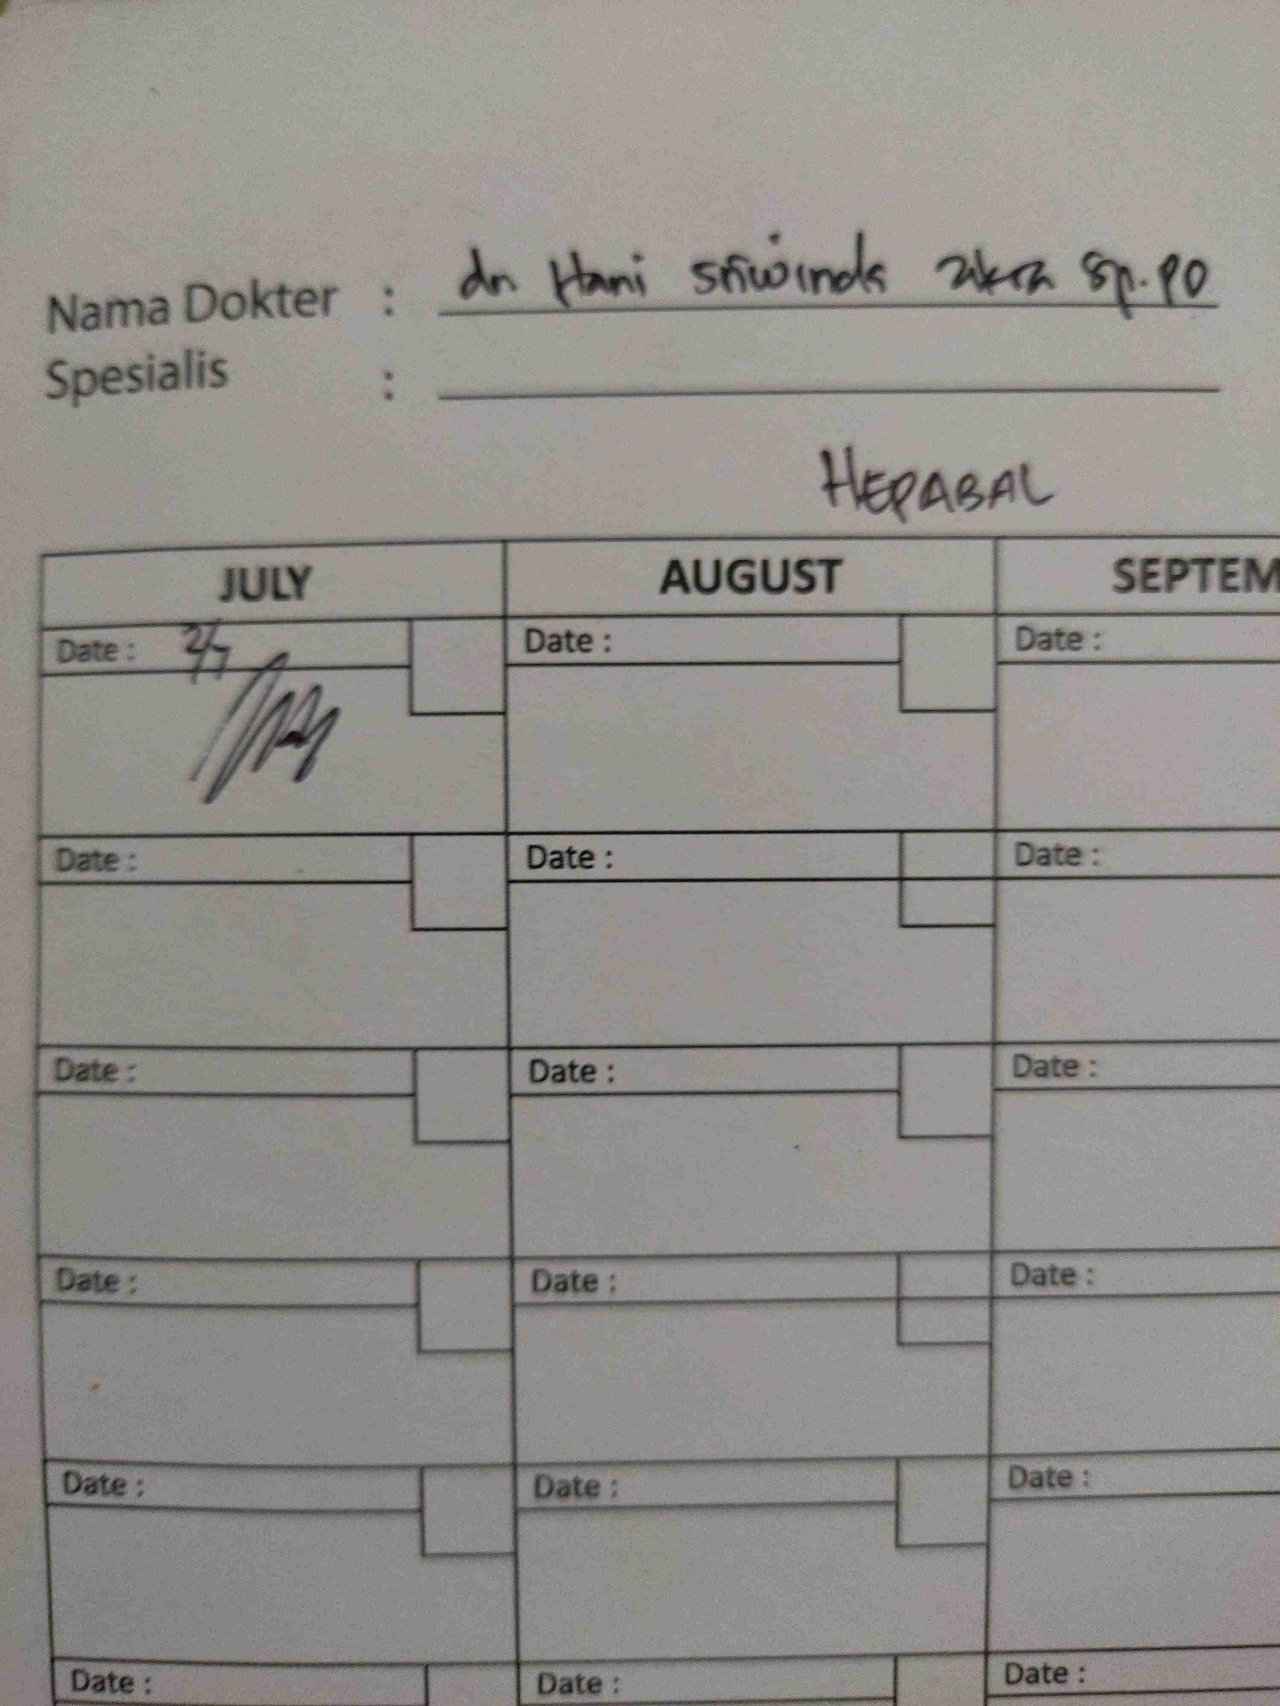 Nama Dokter : dr Hani Sriwinda zikra Sp.PD
Spesialis :
HEPABAL
JULY AUGUST SEPTEM
Date : 2/7 Date : Date :
Date : Date : Date :
Date : Date : Date :
Date : Date : Date :
Date : Date : Date :
Date : Date : Date :